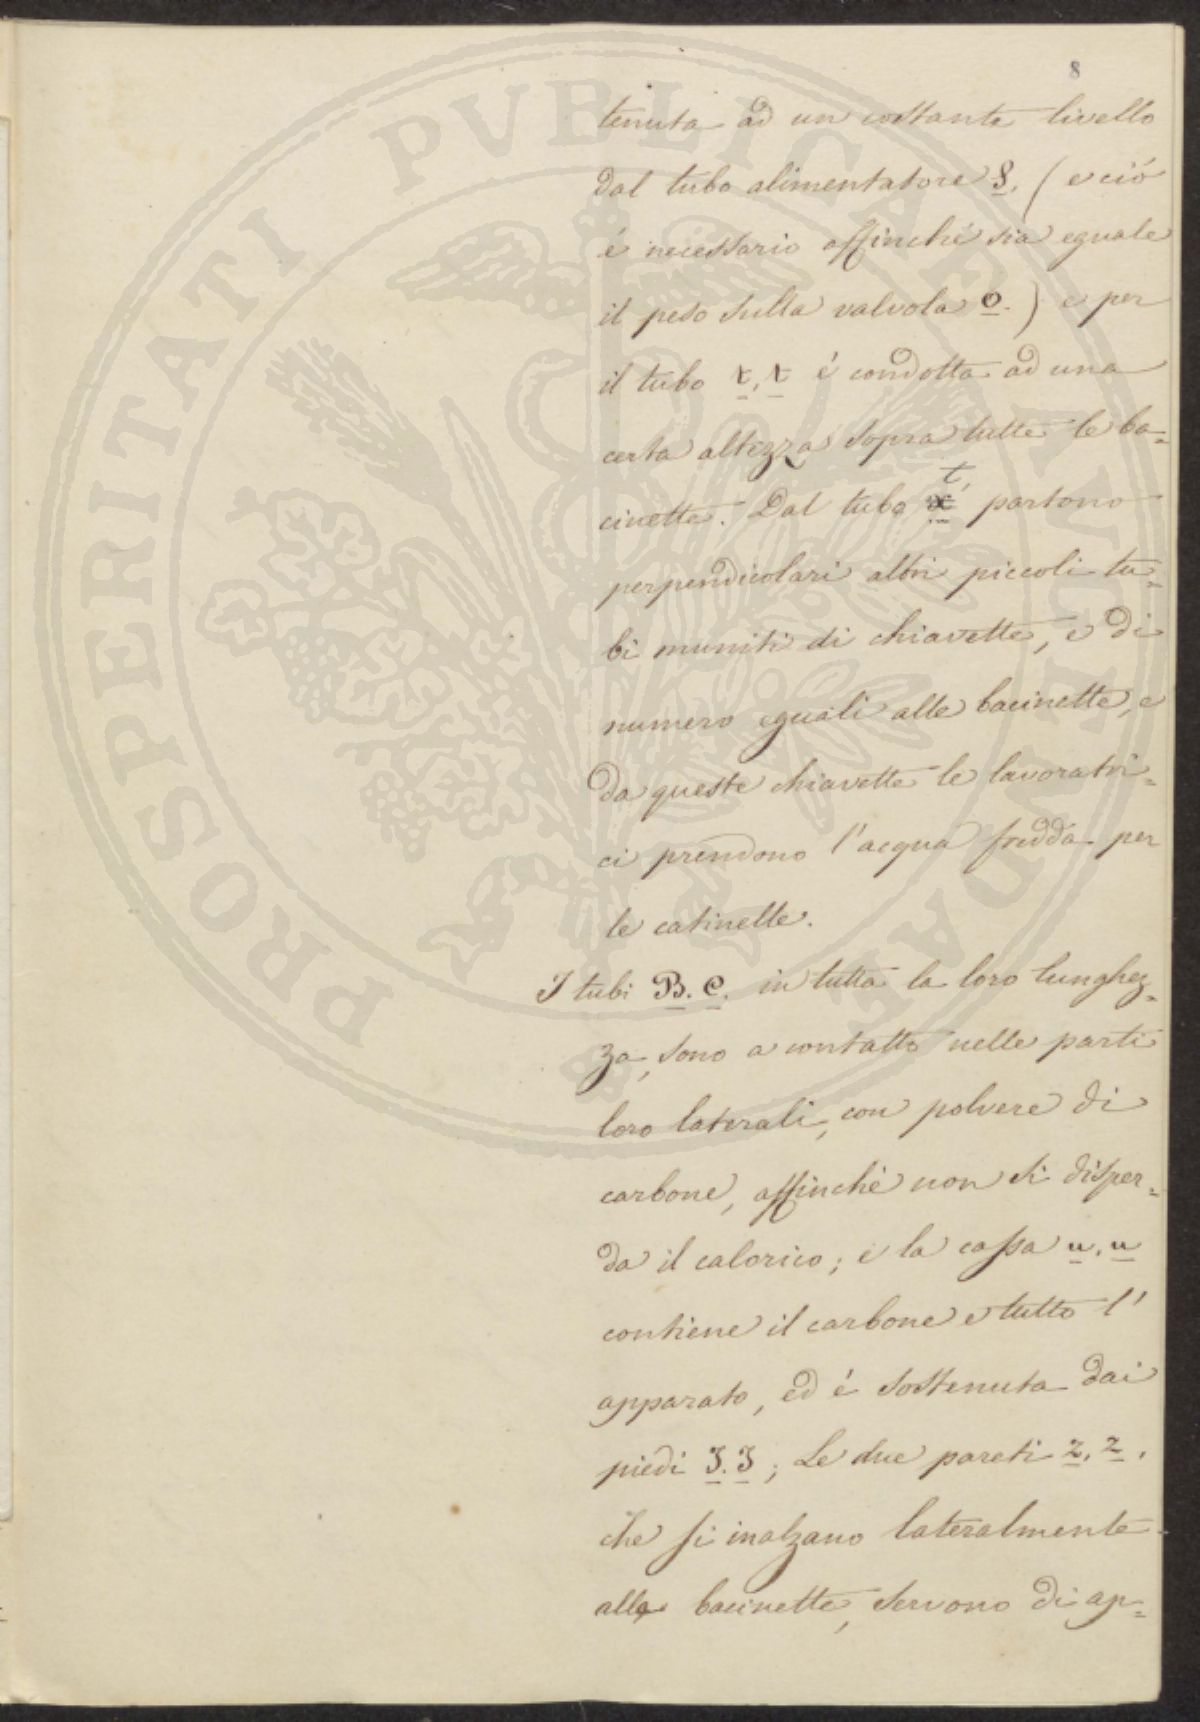 8
tenuta ad un costante livello
dal tubo alimentatore S, (e ció
é necessario affinché sia eguale
il peso sulla valvola o.) e per
il tubo t, t é condotta ad una
certa altezza sopra tutte le ba=
cinette. Dal tubo t, partono
perpendicolari altri piccoli tu=
bi muniti di chiavette, e di
numero eguali alle bacinette, e
da queste chiavette le lavoratri=
ci prendono l'acqua fredda per
le catinelle.
I tubi B. C. in tutta la loro lunghez=
za, sono a contatto nelle parti
loro laterali, con polvere di
carbone, affinché non si disper=
da il calorico; e la cassa u, u
contiene il carbone e tutto l'
apparato, ed é sostenuta dai
piedi 3. 3; Le due pareti z, z,
che si inalzano lateralmente
alle bacinette, servono di ap=
PROSPERITATI PVBLICAE AVGENDAE